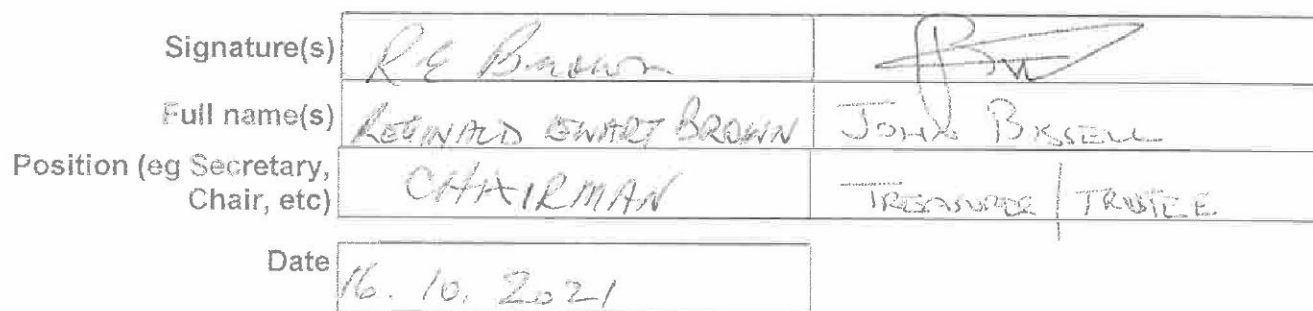 Signature(s) R E Brown
Full name(s) REGINALD EWART BROWN JOHN BISSELL
Position (eg Secretary,
Chair, etc) CHAIRMAN TREASURER / TRUSTEE
Date 16. 10. 2021